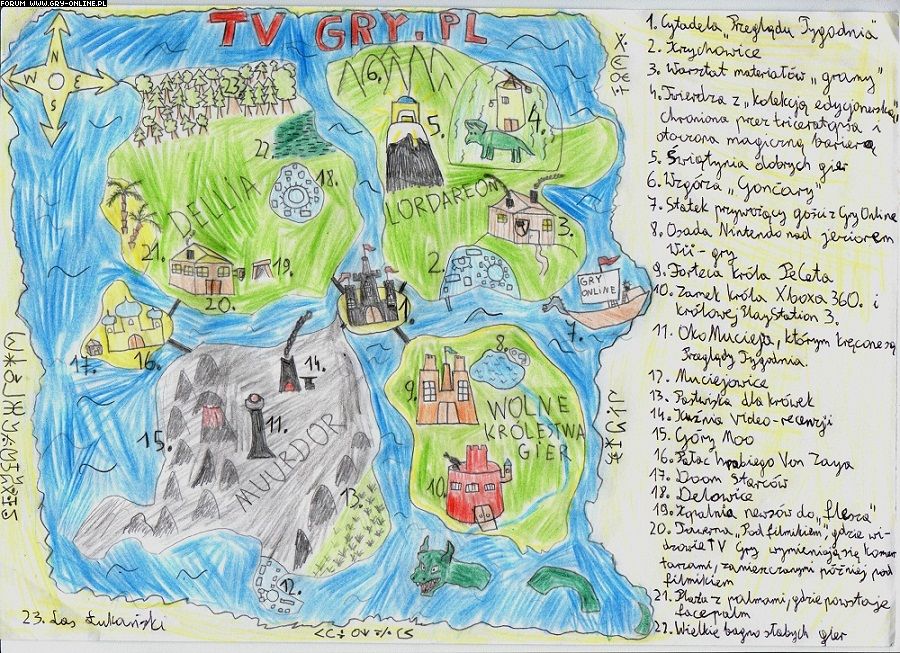 FORUM WWW.GRY-ONLINE.PL
TV GRY.PL
N
W E
S
DELLIA
LORDAREON
MUURDOR
WOLNE
KRÓLESTWA
GIER
GRY
ONLINE
1.
2.
3.
4.
5.
6.
7.
8.
9.
10.
11.
12.
13.
14.
15.
16.
17.
18.
19.
20.
21.
22.
23.
1. Cytadela "Przeglądu Tygodnia"
2. Krychowice
3. Warsztat materiałów "gramy"
4. Twierdza z "kolekcją edycjonerską"
chroniona przez triceratopsa i
otoczona magiczną barierą
5. Świątynia dobrych gier
6. Wzgórza "Gonciary"
7. Statek przywożący gości z Gry Online
8. Osada Nintendo nad jeziorem
Wii-gry
9. Forteca króla PeCeta
10. Zamek króla Xboxa 360. i
królowej PlayStation 3.
11. Oko Muciepa, którym kręcone są
Przeglądy Tygodnia.
12. Muciejowice
13. Pastwiska dla krówek
14. Kuźnia video-recenzji
15. Góry Moo
16. Pałac hrabiego Von Zaya
17. Doom Starców
18. Delowice
19. Kopalnia newsów do "flesza"
20. Tawerna "Pod filmikiem", gdzie wi-
dzowie TV Gry wymieniają się komen-
tarzami, zamieszczanymi później pod
filmikiem
21. Plaża z palmami, gdzie powstaje
facepalm
22. Wielkie bagno słabych gier
23. Las Łukański